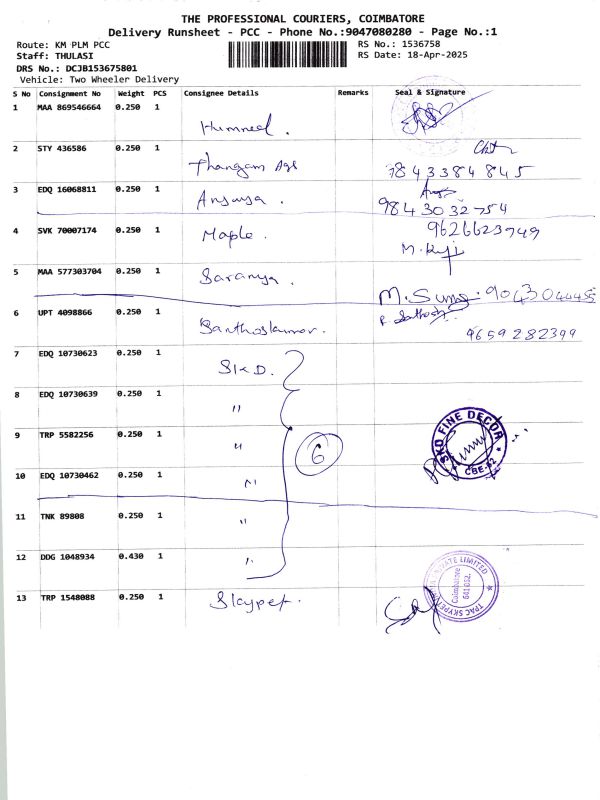 THE PROFESSIONAL COURIERS, COIMBATORE
Delivery Runsheet - PCC - Phone No.:9047080280 - Page No.:1
Route: KM PLM PCC
RS No.: 1536758
Staff: THULASI
RS Date: 18-Apr-2025
DRS No.: DCJB153675801
Vehicle: Two Wheeler Delivery
S No Consignment No Weight PCS Consignee Details Remarks Seal & Signature
1 MAA 869546664 0.250 1
2 STY 436586 0.250 1 Thangam Ags 7843384845
3 EDQ 16068811 0.250 1 Ansuya. 9843032754
4 SVK 70007174 0.250 1 Maple. 9626623749
5 MAA 577303704 0.250 1 Saranya. 9043044455
6 UPT 4098866 0.250 1 Santhoskumar. 9659282399
7 EDQ 10730623 0.250 1 SKD.
8 EDQ 10730639 0.250 1 "
9 TRP 5582256 0.250 1 " 6 SKD FINE DECOR CBE-62
10 EDQ 10730462 0.250 1 "
11 TNK 89808 0.250 1 "
12 DDG 1048934 0.430 1 "
13 TRP 1548088 0.250 1 Skypet. TPAC SKYPET PRIVATE LIMITED Coimbatore 641 062.